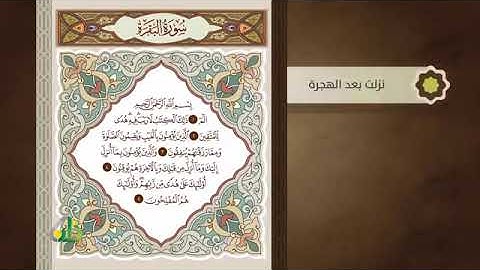 سُورَةُ البَقَرَةِ
بِسْمِ اللَّهِ الرَّحْمَٰنِ الرَّحِيمِ
الٓمٓ ١ ذَٰلِكَ الْكِتَٰبُ لَا رَيْبَ فِيهِ هُدًى
لِّلْمُتَّقِينَ ٢ الَّذِينَ يُؤْمِنُونَ بِالْغَيْبِ وَيُقِيمُونَ الصَّلَوٰةَ
وَمِمَّا رَزَقْنَٰهُمْ يُنفِقُونَ ٣ وَالَّذِينَ يُؤْمِنُونَ بِمَآ أُنزِلَ
إِلَيْكَ وَمَآ أُنزِلَ مِن قَبْلِكَ وَبِالْءَاخِرَةِ هُمْ يُوقِنُونَ ٤
أُو۟لَٰٓئِكَ عَلَىٰ هُدًى مِّن رَّبِّهِمْ وَأُو۟لَٰٓئِكَ
هُمُ الْمُفْلِحُونَ ٥
نزلت بعد الهجرة